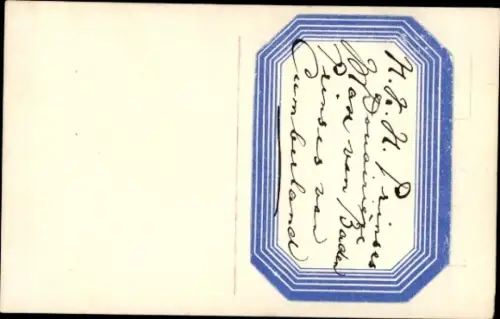 K. H. Prinses
Douairière
Max van Baden
Prinses van
Cumberland